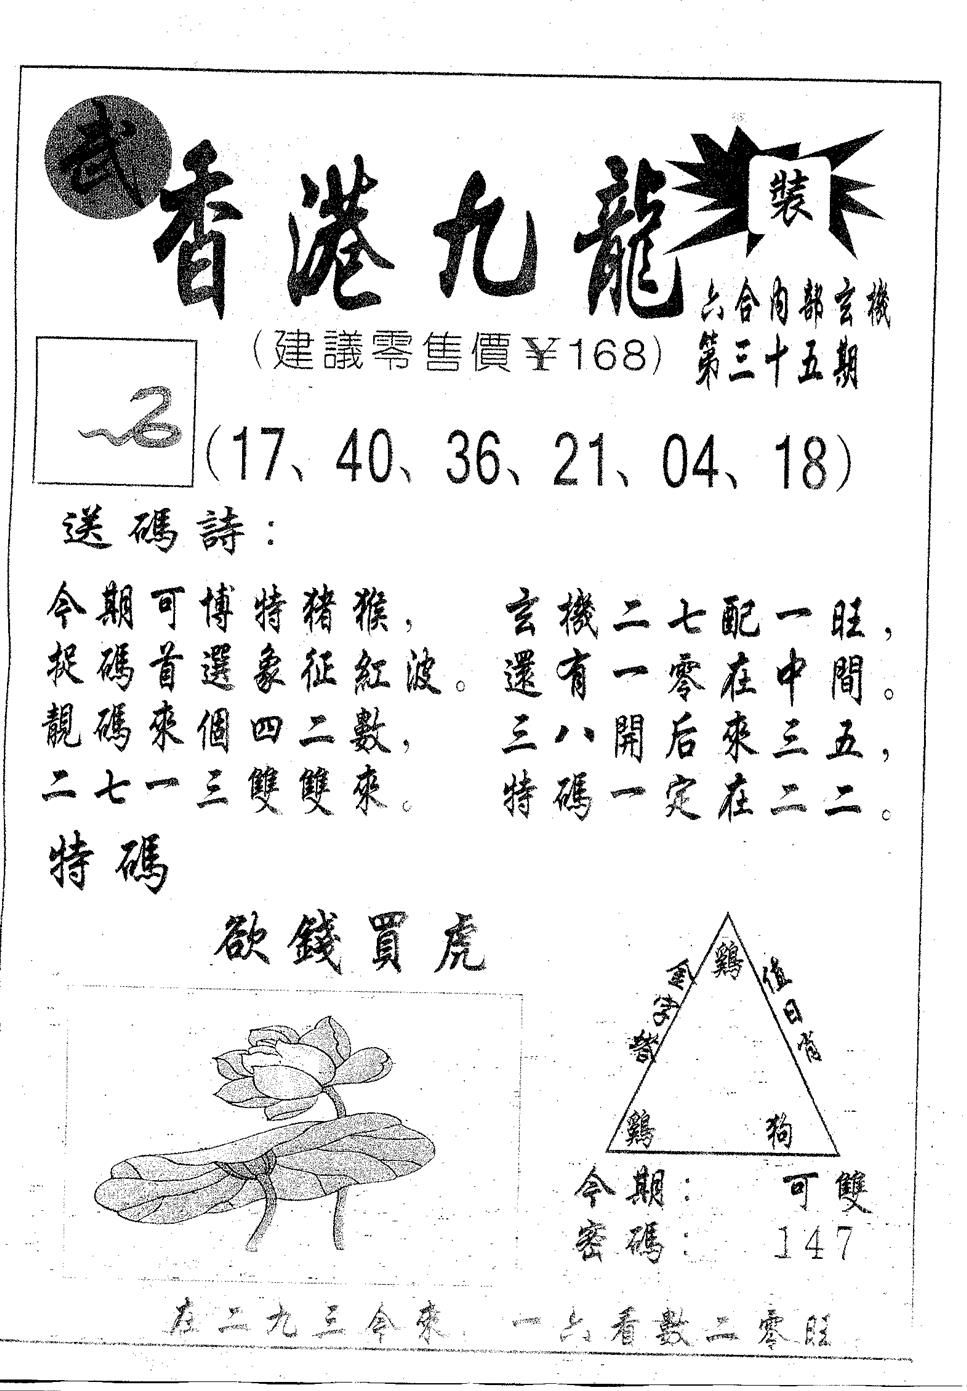 武
香港九龍
裝
六合内部玄機
第三十五期
（建議零售價¥168）
（17、40、36、21、04、18）
送碼詩：
今期可博特猪猴，
捉碼首選象征紅波。
靚碼來個四二數，
二七一三雙雙來。
玄機二七配一旺，
還有一零在中間。
三八開后來三五，
特碼一定在二二。
特碼
欲錢買虎
金字塔
值日肖
鷄
鷄 狗
今期： 可雙
密碼： 147
在二九三今來，一六看數二零旺